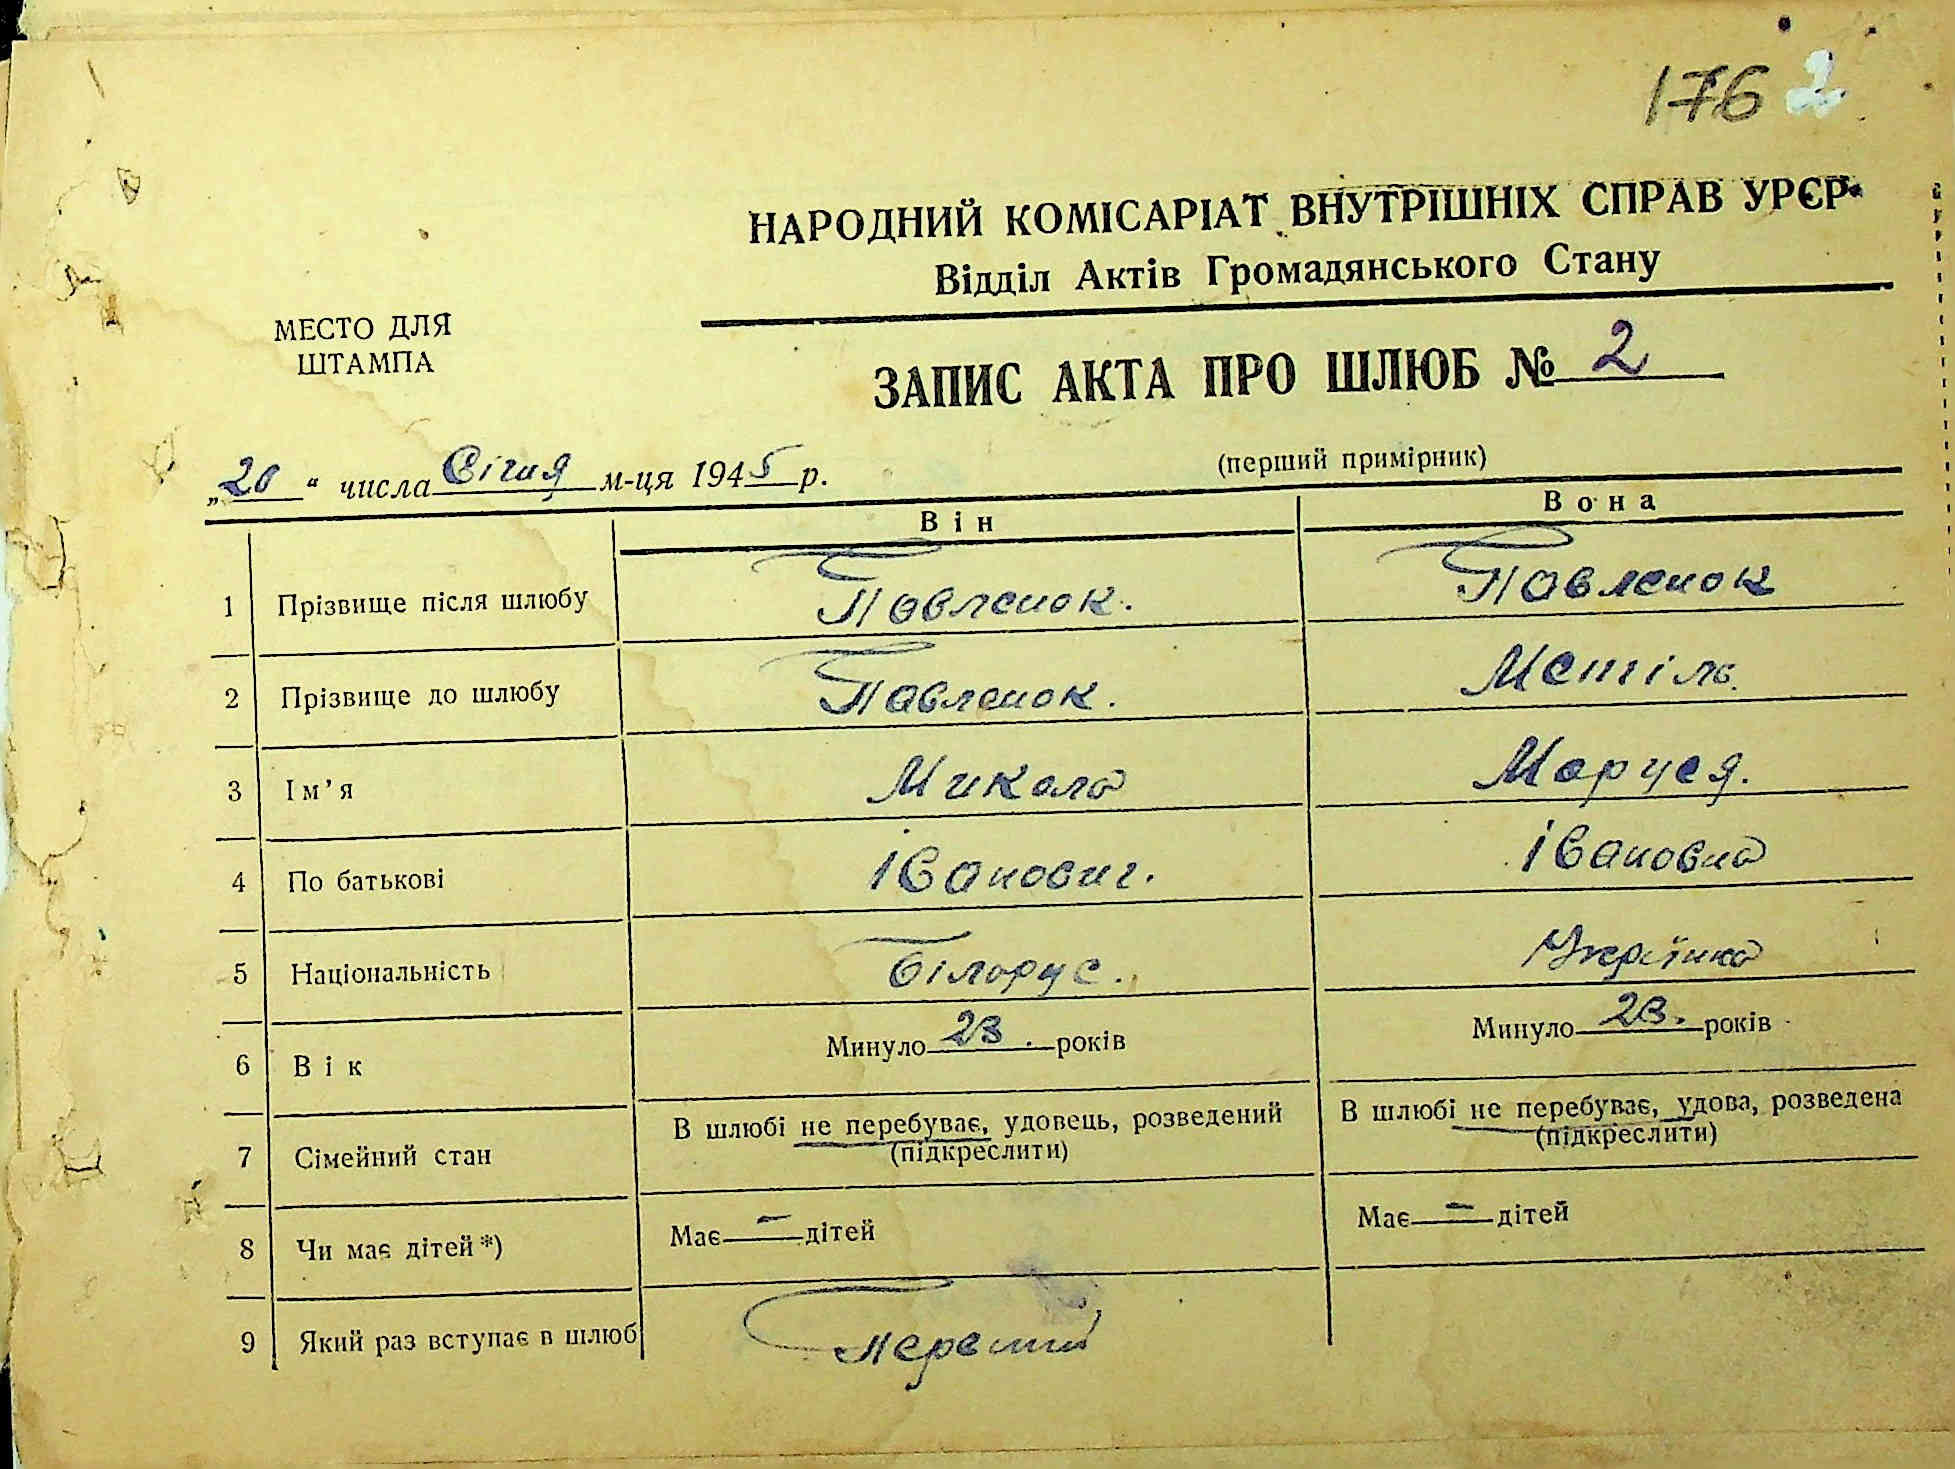 176 2
НАРОДНИЙ КОМІСАРІАТ ВНУТРІШНІХ СПРАВ УРЄР
Відділ Актів Громадянського Стану
МЕСТО ДЛЯ
ШТАМПА
ЗАПИС АКТА ПРО ШЛЮБ № 2
(перший примірник)
„20“ числа Січня м-ця 1945 р.
Він Вона
1 Прізвище після шлюбу Павленок. Павленок
2 Прізвище до шлюбу Павленок. Метіль.
3 Ім’я Микола Маруся.
4 По батькові Іванович. Івановна
5 Національність Білорус. Українка
6 Вік Минуло 23. років Минуло 23. років
7 Сімейний стан В шлюбі не перебуває, удовець, розведений В шлюбі не перебуває, удова, розведена
(підкреслити) (підкреслити)
8 Чи має дітей*) Має — дітей Має — дітей
9 Який раз вступає в шлюб первший